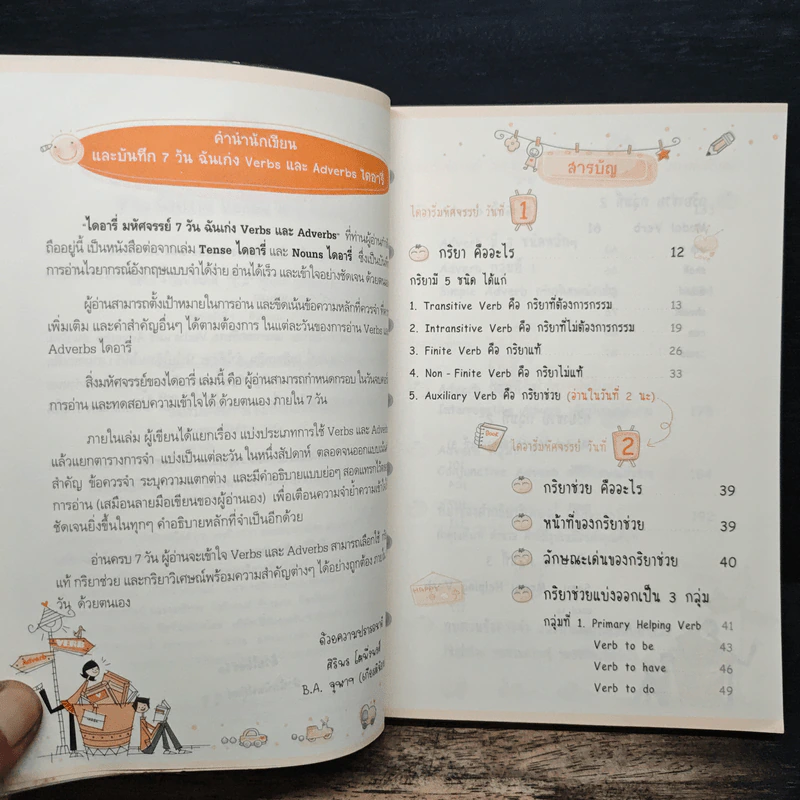 คำนำนักเขียน
และบันทึก 7 วัน ฉันเก่ง Verbs และ Adverbs ไดอารี่
ไดอารี่ มหัศจรรย์ 7 วัน ฉันเก่ง Verbs และ Adverbs" ที่ท่านผู้อ่าน
ถืออยู่นี้ เป็นหนังสือต่อจากเล่ม Tense ไดอารี่ และ Nouns ไดอารี่ ซึ่งเป็น
การอ่านไวยากรณ์อังกฤษแบบจำได้ง่าย อ่านได้เร็ว และเข้าใจอย่างชัดเจน ด้วย
ผู้อ่านสามารถตั้งเป้าหมายในการอ่าน และขีดเน้นข้อความหลักที่ควรจำ
เพิ่มเติม และคำสำคัญอื่นๆ ได้ตามต้องการ ในแต่ละวันของการอ่าน Verbs
Adverbs ไดอารี่
สิ่งมหัศจรรย์ของไดอารี่ เล่มนี้ คือ ผู้อ่านสามารถกำหนดกรอบ
การอ่าน และทดสอบความเข้าใจได้ ด้วยตนเอง ภายใน 7 วัน
ภายในเล่ม ผู้เขียนได้แยกเรื่อง แบ่งประเภทการใช้ Verbs และ
แล้วแยกตารางการจำ แบ่งเป็นแต่ละวัน ในหนึ่งสัปดาห์ ตลอดจนออกแบบ
สำคัญ ข้อควรจำ ระบุความแตกต่าง และมีคำอธิบายแบบย่อๆ สอดแทรก
การอ่าน (เสมือนลายมือเขียนของผู้อ่านเอง) เพื่อเตือนความจำ
ชัดเจนยิ่งขึ้นในทุกๆ คำอธิบายหลักที่จำเป็นอีกด้วย
อ่านครบ 7 วัน ผู้อ่านจะเข้าใจ Verbs และ Adverbs สามารถเลือกใช้
แท้ กริยาช่วย และกริยาวิเศษณ์พร้อมความสำคัญต่างๆ ได้อย่างถูกต้อง
วัน ด้วยตนเอง
ด้วยความปรารถนาดี
B.A. จุฬาฯ
VERB
Adverb
สารบัญ
ไดอารี่มหัศจรรย์ วันที่ 1
กริยา คืออะไร 12
กริยามี 5 ชนิด ได้แก่
1. Transitive Verb คือ กริยาที่ต้องการกรรม 13
2. Intransitive Verb คือ กริยาที่ไม่ต้องการกรรม 19
3. Finite Verb คือ กริยาแท้ 26
4. Non - Finite Verb คือ กริยาไม่แท้ 33
5. Auxiliary Verb คือ กริยาช่วย (อ่านในวันที่ 2 นะ)
ไดอารี่มหัศจรรย์ วันที่ 2
กริยาช่วย คืออะไร 39
หน้าที่ของกริยาช่วย 39
ลักษณะเด่นของกริยาช่วย 40
กริยาช่วยแบ่งออกเป็น 3 กลุ่ม
กลุ่มที่ 1. Primary Helping Verb 41
Verb to be 43
Verb to have 46
Verb to do 49